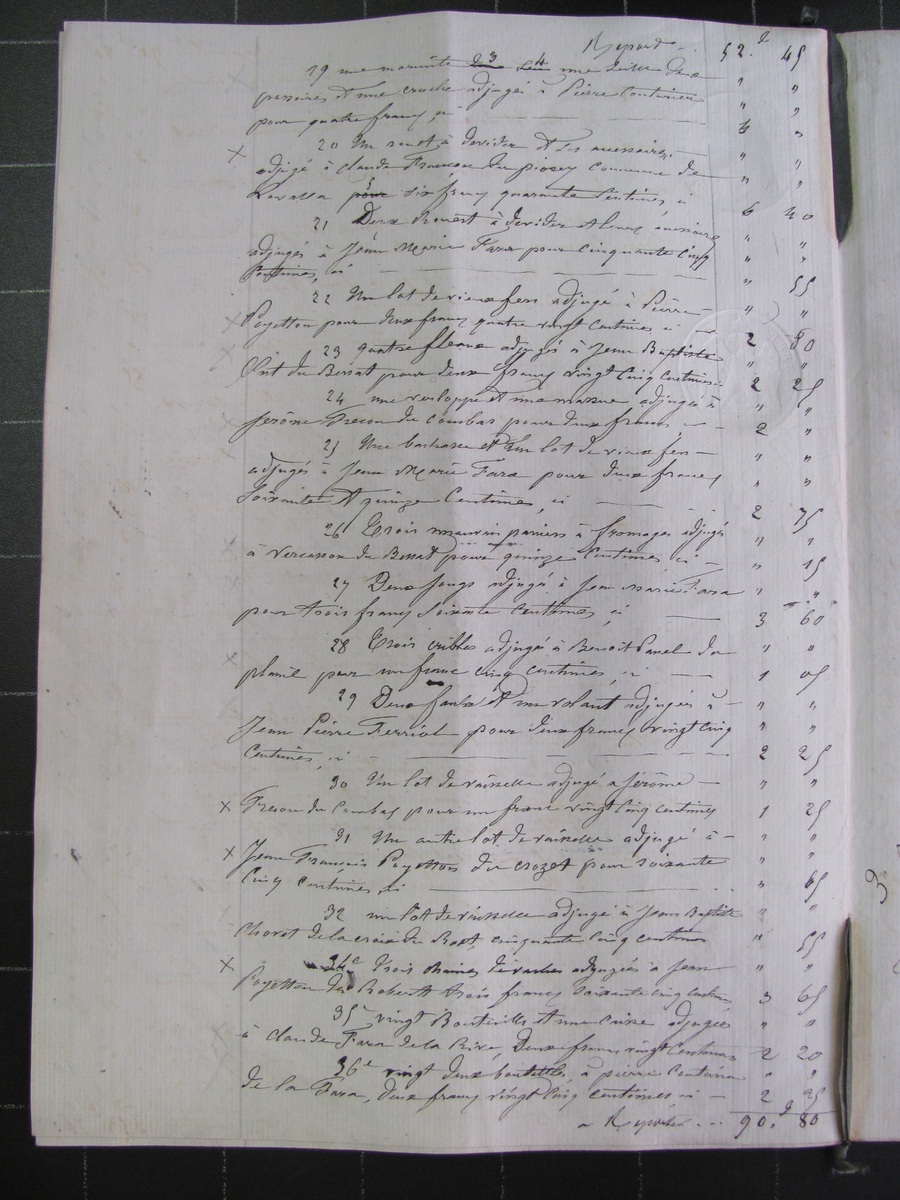 Report 52. f 45
19 une marmite une deux " "
passoires et une cruche adjugés à Pierre Couturier " "
pour quatre francs, ci 4 "
20 Un rouet à devider et ses accessoires " "
adjugé à Claude Francon du commune de " "
Lavalla pour six francs quarante centimes ci 6 40
21 Deux Rouets à devider et leurs accessoires " "
adjugés à Jean Marie Fara pour cinquante cinq " "
centimes, ci " 55
22 Un lot de vieux fers adjugé à Pierre " "
Poyetton pour deux francs quatre vingt centimes ci 2 80
23 quatre fleaux adjugés à Jean Baptiste " "
du Bessat pour deux francs vingt cinq centimes 2 25
24 une verloppe et une masse adjugés à " "
Jérôme du Combas pour deux francs, ci 2 "
25 Une et un lot de vieux fers " "
adjugés à Jean Marie Fara pour deux francs " "
soixante et quinze centimes, ci 2 75
26 Trois mauvais paniers à fromages adjugés " "
à du Bessat pour quinze centimes ci " 15
27 Deux jougs adjugés à Jean Marie Fara " "
pour trois francs soixante centimes, ci 3 60
28 Trois cribles adjugés à Benoit Panel du " "
planil pour un franc cinq centimes, ci 1 05
29 Deux faulx et un volant adjugés à " "
Jean Pierre Ferriol pour deux francs vingt cinq " "
centimes, ci 2 25
30 Un lot de vaisselle adjugé à Jérôme " "
du Combas pour un franc vingt cinq centimes 1 25
31 Un autre lot de vaisselle adjugé à " "
Jean François Poyetton du crozet pour soixante " "
cinq centimes, ci " 65
32 un lot de vaisselle adjugé à Jean Baptiste " "
de la croix du cinquante cinq centimes " 55
34e Trois chaines de vaches adjugées à Jean " "
Poyetton trois francs soixante cinq centimes 3 65
35 vingt Bouteilles et une caisse adjugées " "
à claude Fara de la Rive, Deux francs vingt centimes 2 20
36e vingt deux bouteilles à pierre " "
de la Fara, deux francs vingt cinq centimes ci 2 25
à Reporter 90. f 80